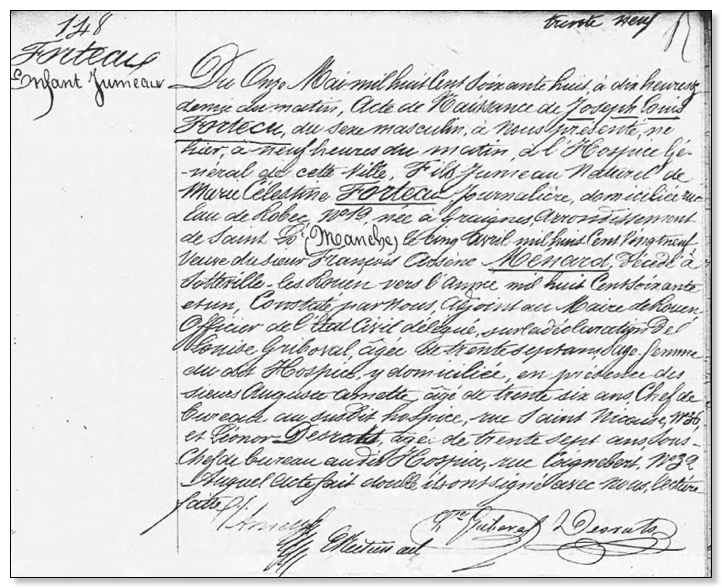 trente neuf
148
Forteau
Enfant Jumeau
Du Onze Mai mil huit Cent Soixante huit, à dix heures &
demie du matin, Acte de Naissance de Joseph Louis
Forteau, du sexe masculin, à Nous présenté, né
hier, à neuf heures du matin, à l'Hospice Gé-
néral de cette Ville, Fils Jumeau Naturel de
Marie Célestine Forteau Journalière, domiciliée rue
Eau de Robec, N° 19, née à Graignes, Arrondissement
de Saint Lô (Manche) le cinq Avril mil huit Cent Vingt neuf
Veuve du sieur François Arsène Menard, Décédé à
Sotteville-lès-Rouen vers l'année mil huit Cent Soixante
et un, Constaté par Nous, Adjoint au Maire de Rouen,
Officier de l'Etat Civil délégué, sur la déclaration De
Louise Griboval, âgée de trente sept ans, Sage-femme
du dit Hospice, y domiciliée, en présence des
sieurs Auguste Amette, âgé de trente six ans Chef de
bureau du susdit hospice, rue Saint Nicaise, N° 36,
et Léonor Desrats, âgé de trente sept ans Sous-
Chef de bureau au dit Hospice, rue Coignebert, N° 32
Auquel Acte fait double ils ont signé avec Nous, lecture
faite
Griboval L Desrats